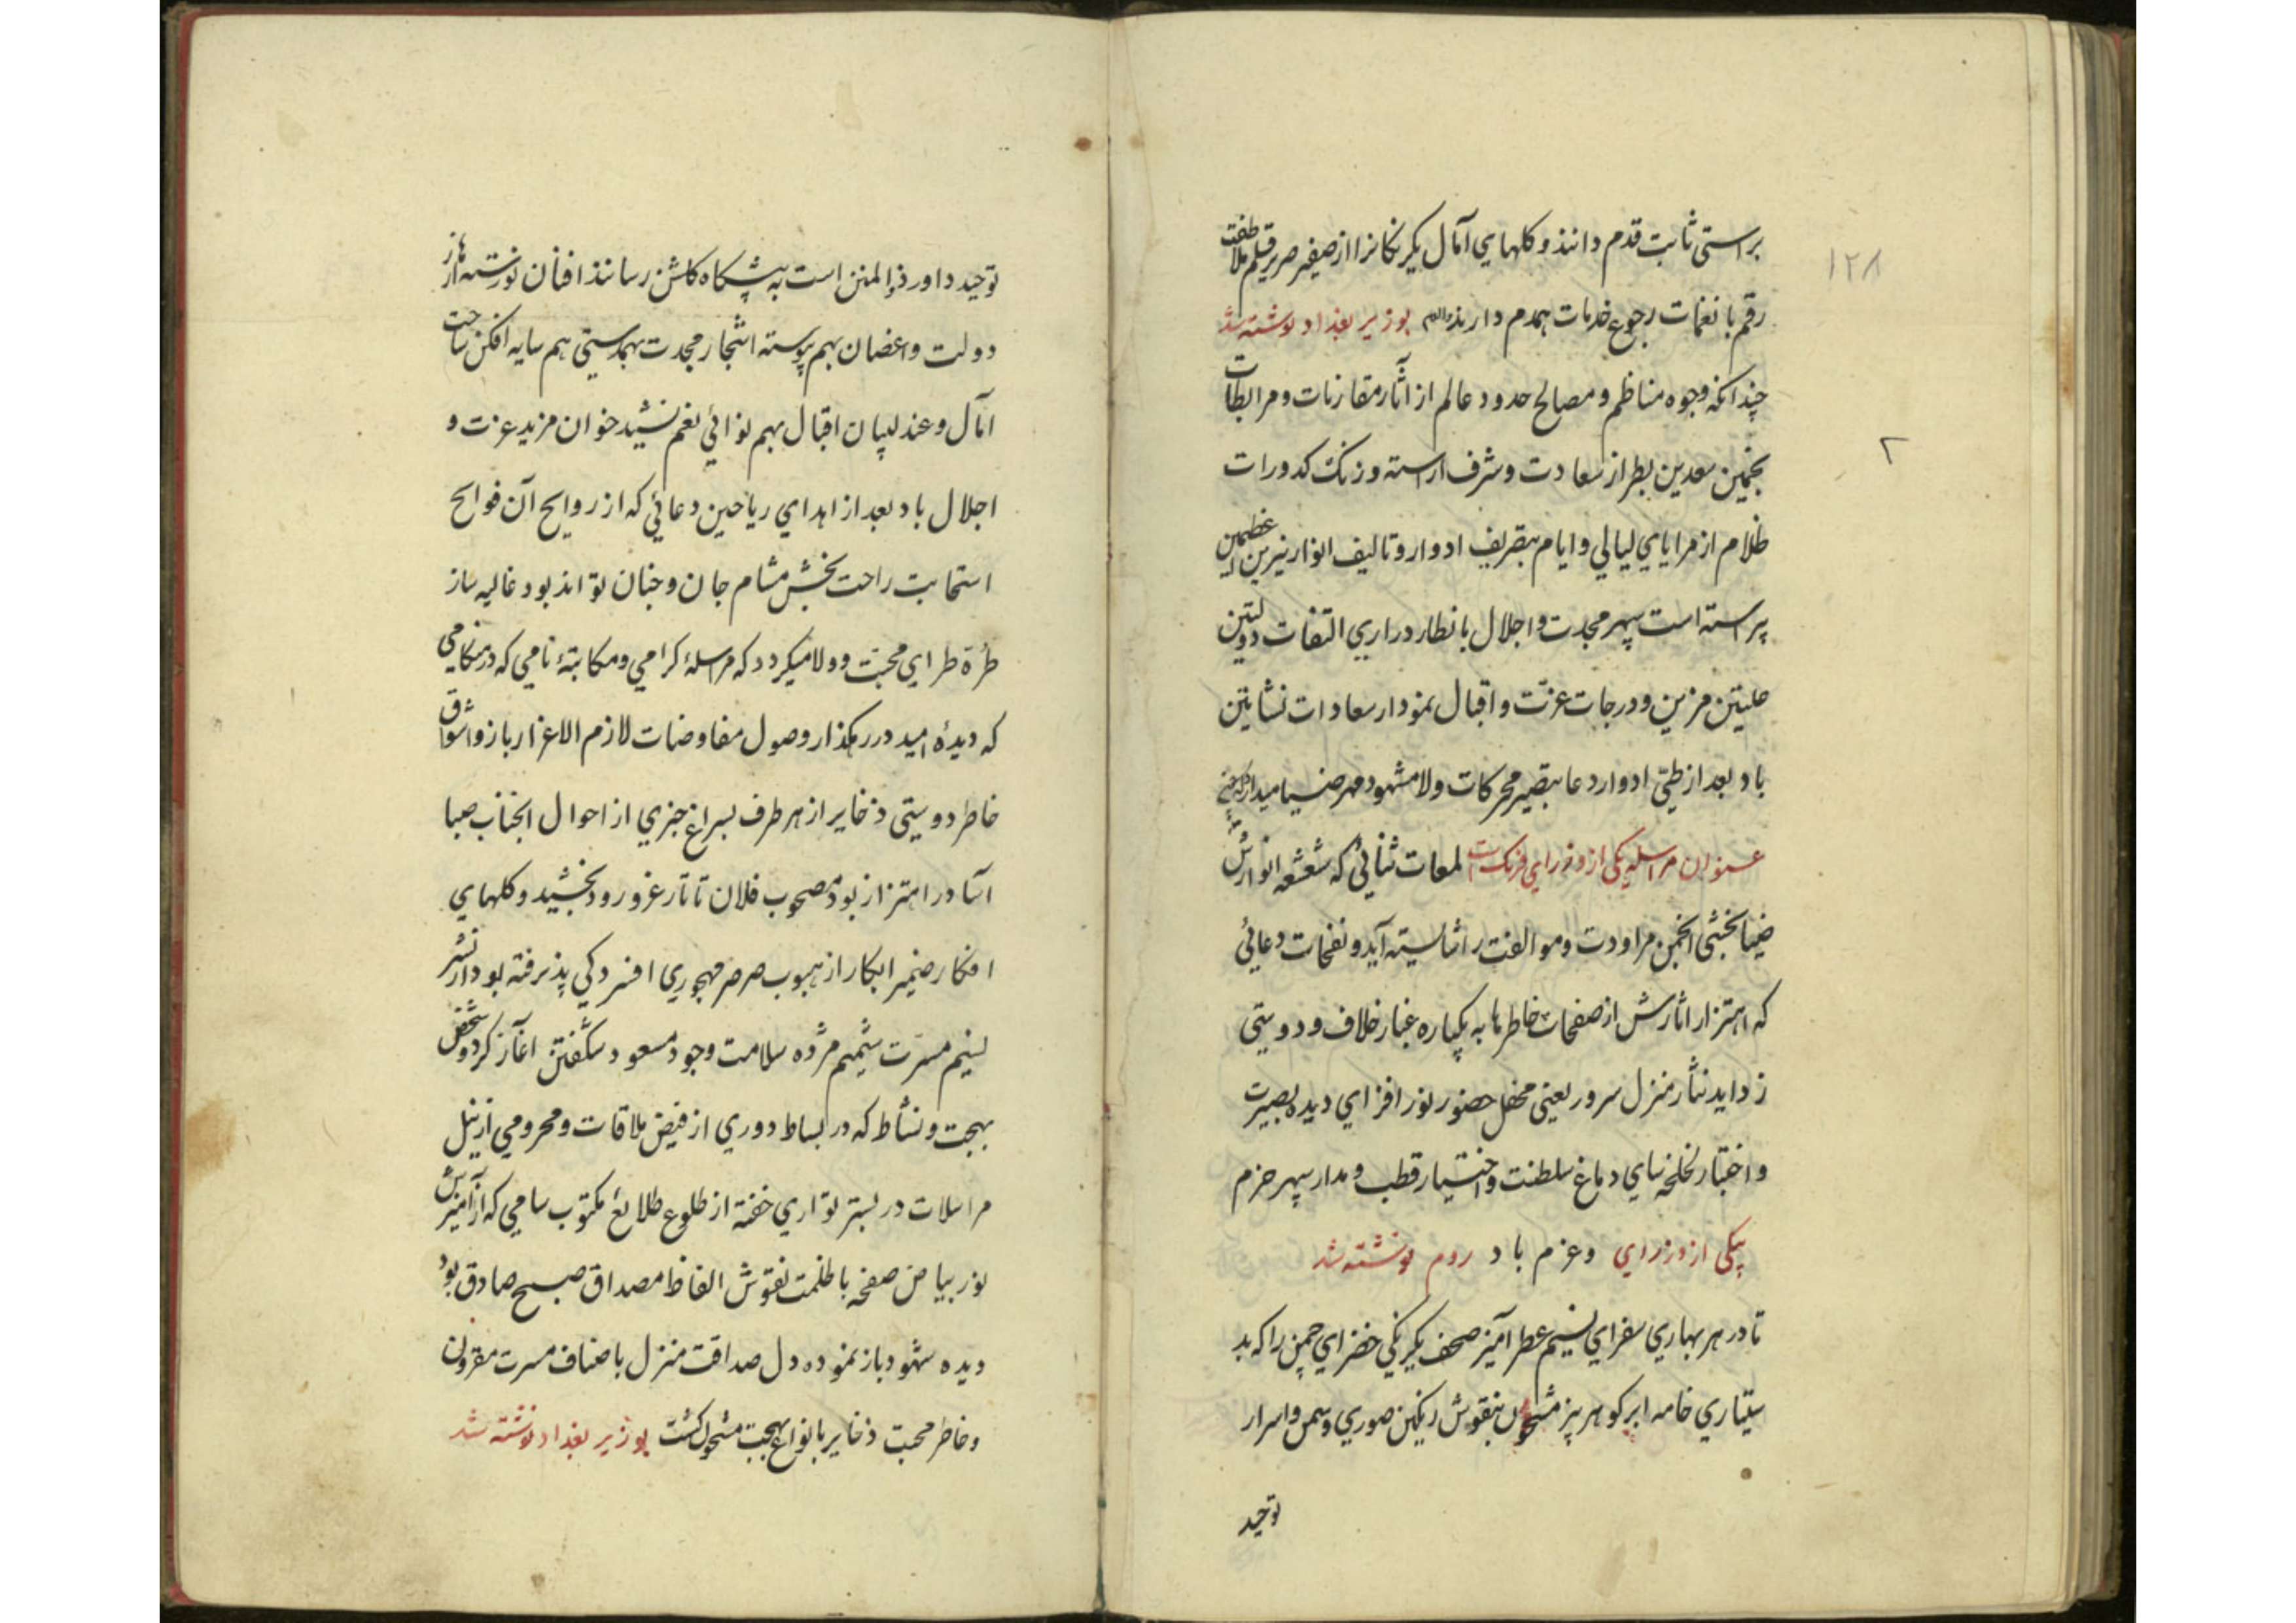 براستی ثابت قدم دانند و کلهای آمال یکرنکانرا از صفیر صریر قلم ملاطفت
رقم با نغمات رجوع خدمات همدم دارند والم بوزیر بغداد نوشته شد
۱۲۸
چندانکه وجوه مناظم و مصالح حدود عالم از آثار مقارنات و مرابطات
نجمین سعدین بطراز سعادت و شرف اراسته و زنک کدورات
۲
ظلام از مرایای لیالی و ایام بتصریف ادوار و تالیف انوار نیرین اعظمین
پیراسته است سپهر مجدت و اجلال بانظار دراری التفات دولتین
علیتین مزین و درجات عزت و اقبال نمودار سعادات نشاتین
باد بعد از طی ادوار دعا بتصیر محرکات ولا مشهود مهر ضیا میدارد
عنوان مراسله یکی از وزرای فرنک است لمعات ثنائی که شعشعه انوارش
ضیا بخشی انجمن مراودت و موالفت را شایسته آید و نفحات دعائی
که اهتزار اثارش از صفحات خاطرها به یکباره غبار خلاف و دوستی
زداید نثار منزل سرور یعنی محفل حضور نور افزای دیده بصیرت
و اختبار لخلخه سای دماغ سلطنت و اختیار قطب و مدار سپهر حزم
و عزم باد بیکی از وزرای روم نوشته شد
تا در هر بهاری سفرای نسیم عطر آمیز صحف یکرنکی خضرای چمن را که بد
ستیاری خامه ابر کوهر بیز مشحون بنقوش رنکین صوری و سمن و اسرار
توحید
توحید داور ذو المنن است به پیشکاه کلشن رسانند افنان نورسته ازهار
دولت و اغصان بهم پیوسته اشجار مجدت بهمدستی هم سایه افکن ساحت
آمال و عندلیبان اقبال بهم نوائی نغم نشید خوان مزید عزت و
اجلال باد بعد از اهدای ریاحین دعائی که از روایح آن فوایح
استجابت راحت بخش مشام جان و جنان تواند بود غالیه ساز
طره طرای محبت و ولا میکردد که مراسله کرامی و مکاتبهٔ نامی که در هنکامی
که دیدهٔ امید در رهکذار وصول مفاوضات لازم الاعزار باز و اشواق
خاطر دوستی ذخایر از هر طرف بسراغ خبری از احوال انجناب صبا
آسا در اهتزاز بود مصحوب فلان تاتار غز ورود بخشید و کلهای
افکار ضمیر ابکار از هبوب صرصر مهجوری افسردکی پذیرفته بود از نشر
نسیم مسرت شمیم مژده سلامت وجود مسعود شکفتن آغاز کرد و شخص
بهجت و نشاط که در بساط دوری از فیض ملاقات و محرومی از نیل
مراسلات در بستر تواری خفته از طلوع طلایع مکتوب سامی که از آمیزش
نور بیاض صفحه با ظلمت نقوش الفاظ مصداق صبح صادق بود
دیده شهود باز نموده دل صداقت منزل باصناف مسرت مقرون
و خاطر محبت ذخایر بانواع بهجت مشحون کشت بوزیر بغداد نوشته شد